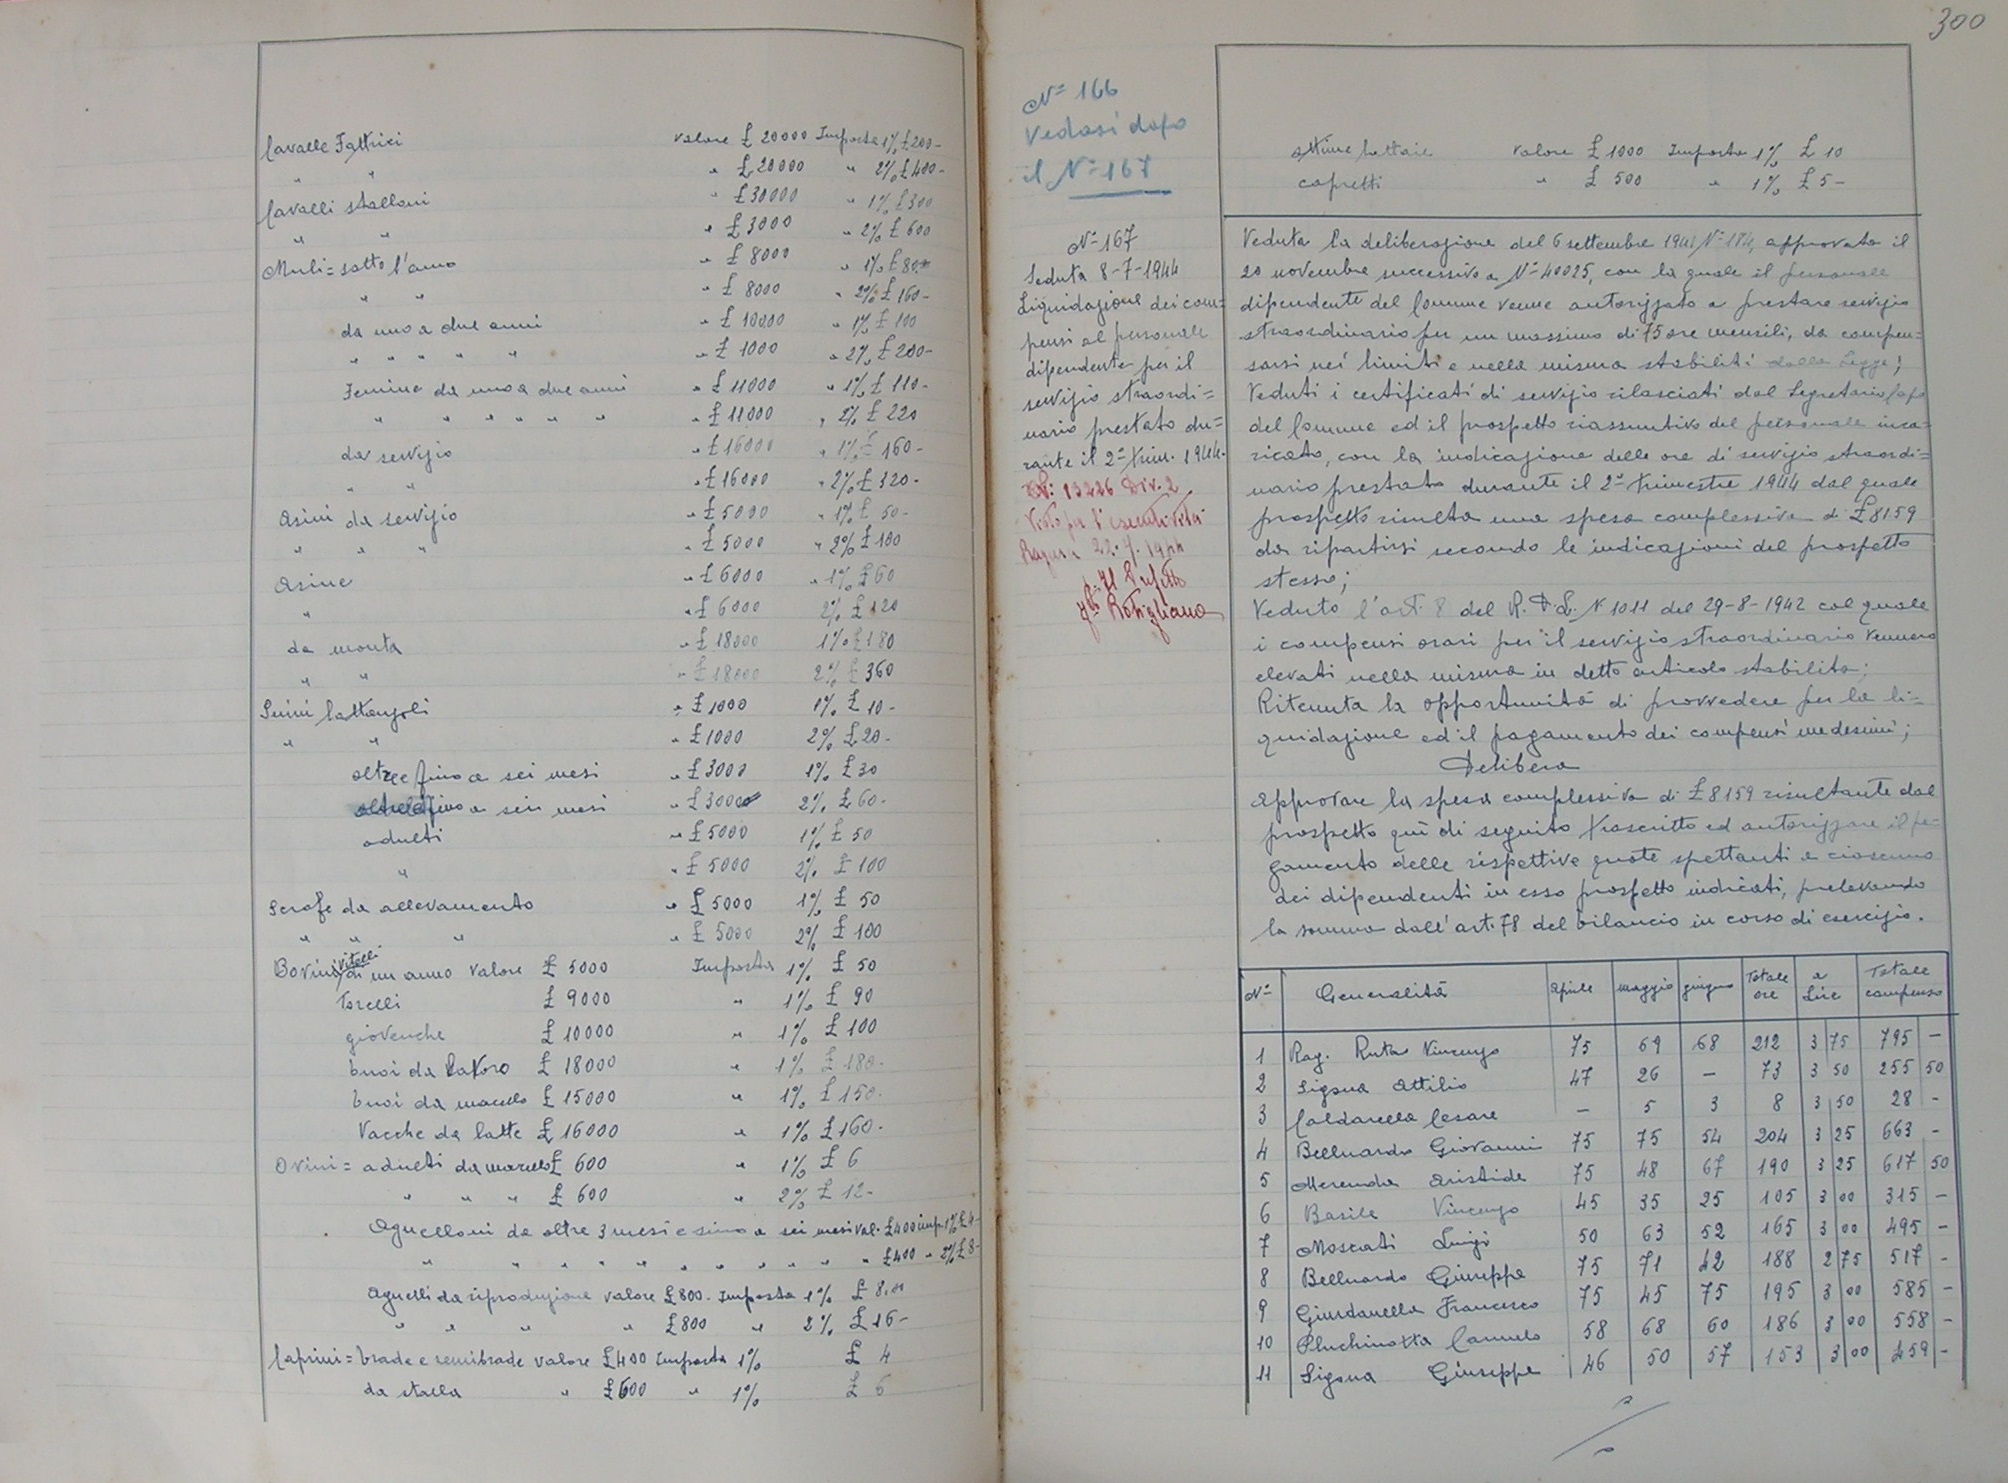 Cavalle Fattrici valore £ 20000 Imposta 1% £ 200-
" " " £ 20000 " 2% £ 400-
Cavalli stalloni " £ 30000 " 1% £ 300
" " " £ 3000 " 2% £ 600
Muli = sotto l'anno " £ 8000 " 1% £ 80
" " " £ 8000 " 2% £ 160-
da uno a due anni " £ 10000 " 1% £ 100
" " " " " " £ 1000 " 2% £ 200-
Femine da uno a due anni " £ 11000 " 1% £ 110-
" " " " " " " £ 11000 " 2% £ 220
da servizio " £ 16000 " 1% £ 160-
" " " £ 16000 " 2% £ 320-
Asini da servizio " £ 5000 " 1% £ 50-
" " " " £ 5000 " 2% £ 100
Asine " £ 6000 " 1% £ 60
" " £ 6000 2% £ 120
da monta " £ 18000 1% £ 180
" " " £ 18000 2% £ 360
Suini lattonzoli " £ 1000 1% £ 10-
" " " £ 1000 2% £ 20-
oltre fino a sei mesi " £ 3000 1% £ 30
oltre fino a sei mesi " £ 3000 2% £ 60-
adulti " £ 5000 1% £ 50
" " £ 5000 2% £ 100
Scrofe da allevamento " £ 5000 1% £ 50
" " " " £ 5000 2% £ 100
Bovini vitelli di un anno valore £ 5000 Imposta 1% £ 50
Torelli £ 9000 " 1% £ 90
giovenche £ 10000 " 1% £ 100
buoi da lavoro £ 18000 " 1% £ 180-
buoi da macello £ 15000 " 1% £ 150-
Vacche da latte £ 16000 " 1% £ 160-
Ovini = adulti da macello £ 600 " 1% £ 6
" " " £ 600 " 2% £ 12-
Agnelloni da oltre 3 mesi e sino a sei mesi val. £ 400 imp. 1% £ 4-
" " " " " " " " " " " £ 400 " 2% £ 8-
Agnelli da riproduzione valore £ 800- Imposta 1% £ 8,00
" " " " £ 800 " 2% £ 16-
Caprini = brade e semibrade valore £ 400 Imposta 1% £ 4
da stalla " £ 600 " 1% £ 6
300
N= 166
Vedasi dopo
il N= 167
lattaie valore £ 1000 Imposta 1% £ 10
capretti " £ 500 " 1% £ 5-
N= 167
Seduta 8-7-1944
Liquidazione dei com=
pensi al personale
dipendente per il
servizio straordi=
nario prestato du=
rante il 2° trim. 1944.
N: 13226 Div. 2
Visto per l'esecutività
Ragusa 22.7.1944
p. Il Prefetto
Veduta la deliberazione del 6 settembre 1941 N= 184, approvata il
20 novembre successivo a N= 40025, con la quale il personale
dipendente del Comune venne autorizzato a prestare servizio
straordinario per un massimo di 75 ore mensili, da compen=
sarsi nei limiti e nella misura stabiliti dalla Legge;
Veduti i certificati di servizio rilasciati dal Segretario Capo
del Comune ed il prospetto riassuntivo del personale inca=
ricato, con la indicazione delle ore di servizio straordi=
nario prestato durante il 2° trimestre 1944 dal quale
prospetto risulta una spesa complessiva di £ 8159
da ripartirsi secondo le indicazioni del prospetto
stesso;
Veduto l'art. 8 del R.D.L. N 1011 del 29-8-1942 col quale
i compensi orari per il servizio straordinario vennero
elevati nella misura in detto articolo stabilita;
Ritenuta la opportunità di provvedere per la li=
quidazione ed il pagamento dei compensi medesimi;
Delibera
Approvare la spesa complessiva di £ 8159 risultante dal
prospetto quì di seguito trascritto ed autorizzare il pa=
gamento delle rispettive quote spettanti a ciascuno
dei dipendenti in esso prospetto indicati, prelevando
la somma dall'art. 78 del bilancio in corso di esercizio.
N= Generalità Aprile maggio giugno Totale ore a Lire Totale compenso
1 Rag. Ruta Vincenzo 75 69 68 212 3 75 795 -
2 Sigona Attilio 47 26 - 73 3 50 255 50
3 Caldarella Cesare - 5 3 8 3 50 28 -
4 Belluardo Giovanni 75 75 54 204 3 25 663 -
5 Merenda Aristide 75 48 67 190 3 25 617 50
6 Basile Vincenzo 45 35 25 105 3 00 315 -
7 Moscati Luigi 50 63 52 165 3 00 495 -
8 Belluardo Giuseppe 75 71 42 188 2 75 517 -
9 Giurdanella Francesco 75 45 75 195 3 00 585 -
10 Pluchinotta Carmelo 58 68 60 186 3 00 558 -
11 Sigona Giuseppe 46 50 57 153 3 00 459 -